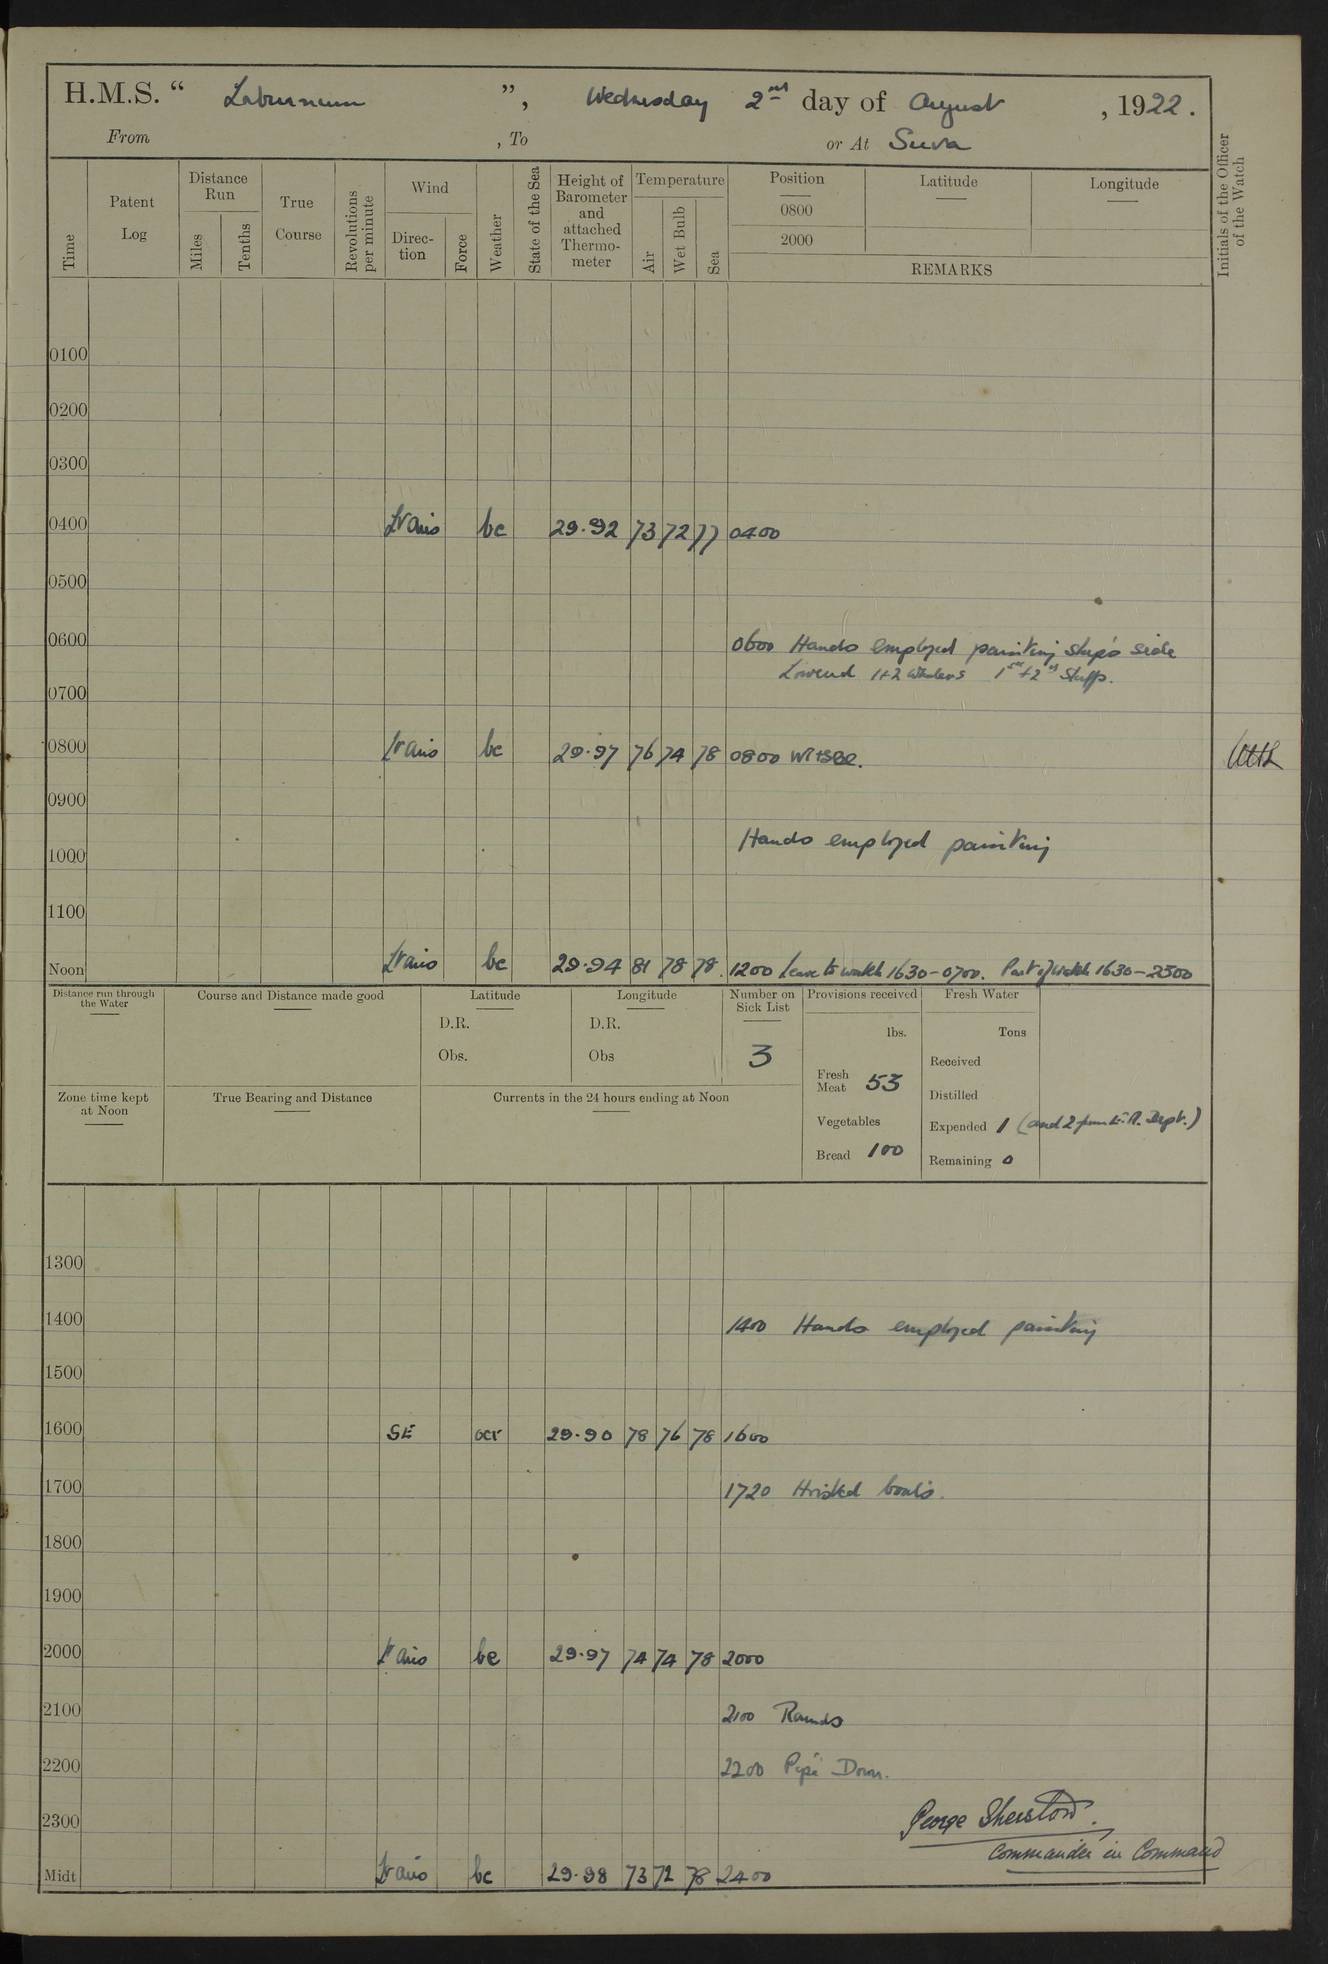 H.M.S. “ Laburnum ”, Wednesday 2nd day of August , 1922.
From , To or At Suva
Time
Patent Log
Distance Run
Miles
Tenths
True Course
Revolutions per minute
Wind
Direc-tion
Force
Weather
State of the Sea
Height of Barometer and attached Thermo-meter
Temperature
Air
Wet Bulb
Sea
Position
0800
2000
Latitude
Longitude
REMARKS
Initials of the Officer of the Watch
0100
0200
0300
0400 Lt airs bc 29.92 73 72 77 0400
0500
0600 0600 Hands employed painting ship's side
Lowered 1+2 whalers 1st + 2nd Skiffs.
0700
0800 Lt airs bc 29.97 76 74 78 0800
0900
Hands employed painting
1000
1100
Noon Lt airs bc 29.94 81 78 78 1200 Leave to watch 1630-0700. Part of watch 1630-2300
Distance run through the Water
Course and Distance made good
Latitude
D.R.
Obs.
Longitude
D.R.
Obs
Number on Sick List
3
Provisions received
lbs.
Fresh Meat 53
Vegetables
Bread 100
Fresh Water
Tons
Received
Distilled
Expended 1 (and 2 from E.R. Dept.)
Remaining 0
Zone time kept at Noon
True Bearing and Distance
Currents in the 24 hours ending at Noon
1300
1400 1400 Hands employed painting
1500
1600 SE ocr 29.90 78 76 78 1600
1700 1720 Hoisted boats.
1800
1900
2000 Lt airs bc 29.97 74 74 78 2000
2100 2100 Rounds
2200 2200 Pipe Down.
2300
George Sherston.
Commander in Command
Midt Lt airs bc 29.98 73 72 78 2400